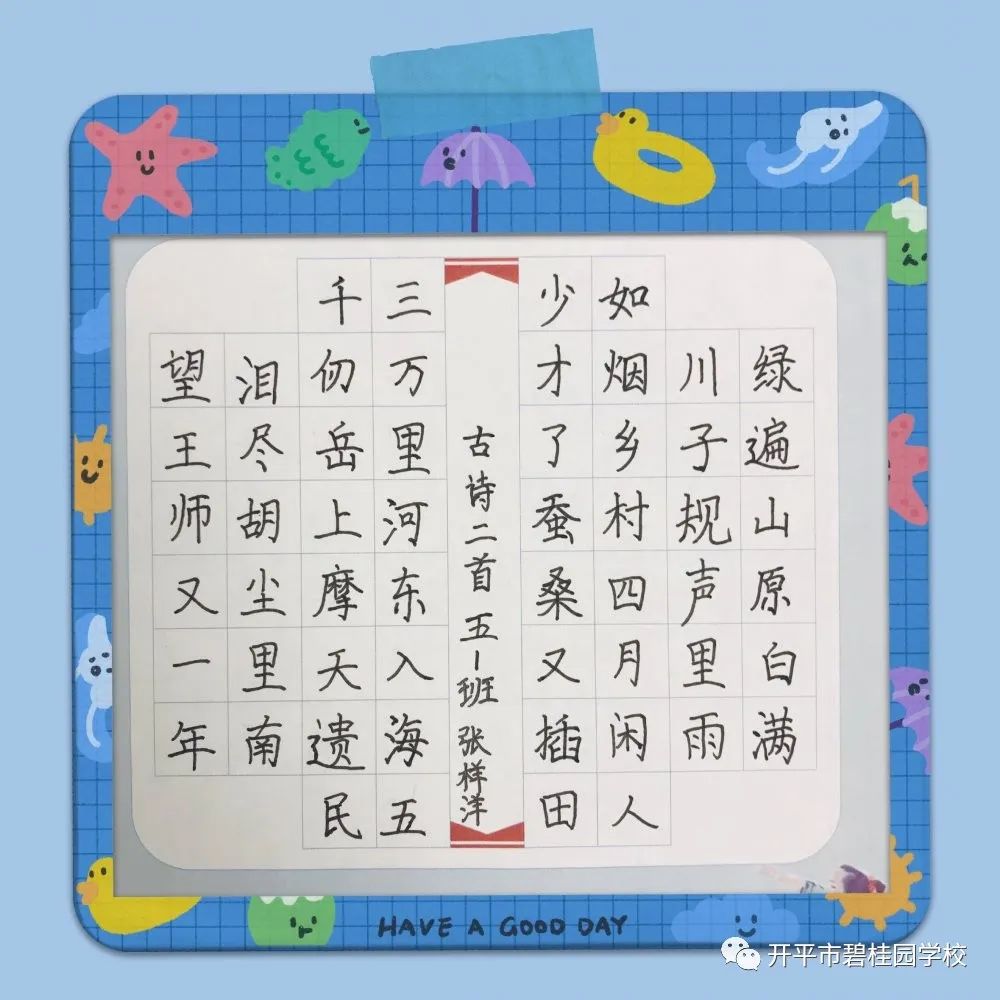 绿遍山原白满
川子规声里雨
如烟乡村四月闲人
少才了蚕桑又插田
古诗二首 五一班 张样洋
三万里河东入海五
千仞岳上摩天遗民
泪尽胡尘里南
望王师又一年
HAVE A GOOD DAY
开平市碧桂园学校